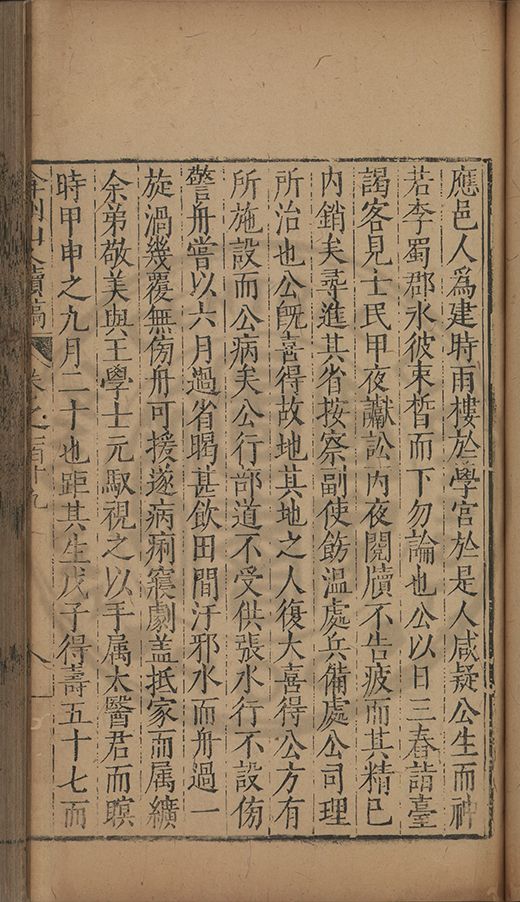 應邑人爲建時雨樓於學宮於是人咸疑公生而神
若李蜀郡水彼束晳而下勿論也公以日三春詣臺
謁客見士民甲夜讞訟丙夜閱牘不告疲而其精已
内銷矣尋進其省按察副使飭溫處兵備處公司理
所治也公旣喜得故地其地之人復大喜得公方有
所施設而公病矣公行部道不受供張水行不設傍
警舟嘗以六月過省暍甚飲田間汙邪水而舟過一
旋渦幾覆無傍舟可援遂病痢寖劇盖抵家而属纊
余弟敬美與王學士元馭視之以手属太醫君而瞑
時甲申之九月二十也距其生戊子得壽五十七而